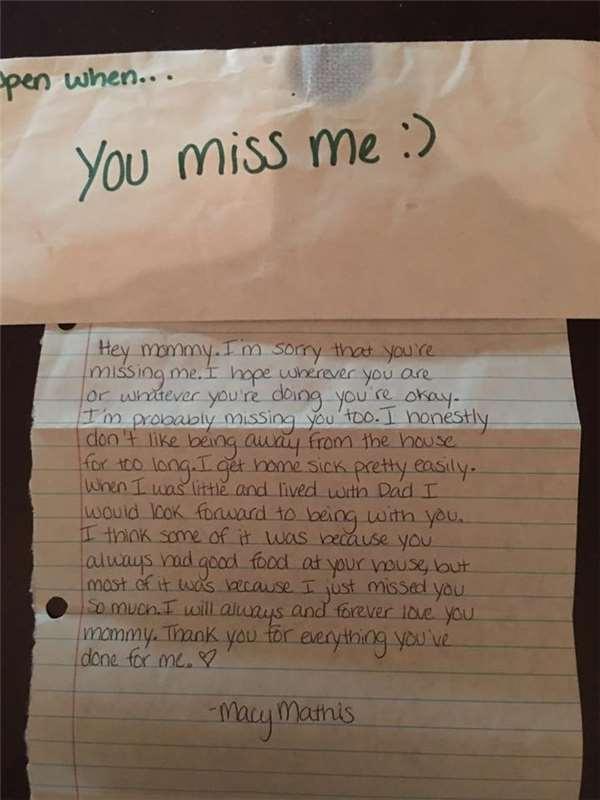 open when...
You miss me :)
Hey mommy. I'm sorry that you're
missing me. I hope wherever you are
or whatever you're doing you're okay.
I'm probably missing you too. I honestly
don't like being away from the house
for too long. I get home sick pretty easily.
When I was little and lived with Dad I
would look forward to being with you.
I think some of it was because you
always had good food at your house, but
most of it was because I just missed you
so much. I will always and forever love you
mommy. Thank you for everything you've
done for me. ♡
-Macy Mathis